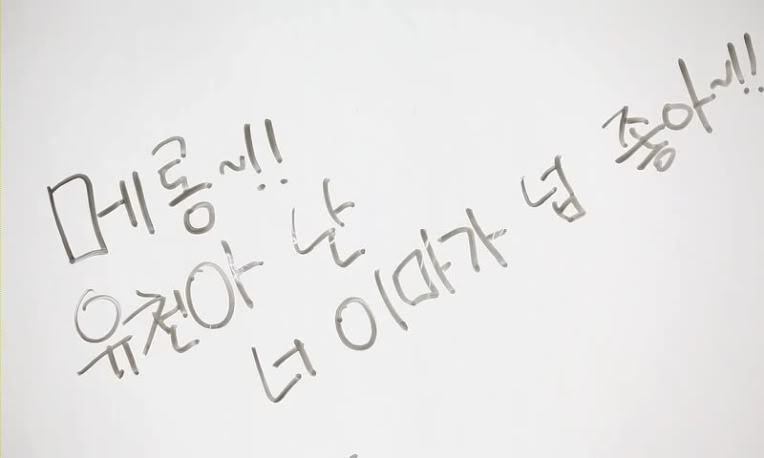 메롱~!!
유천아 난
너 이마가 넘 좋아~!!